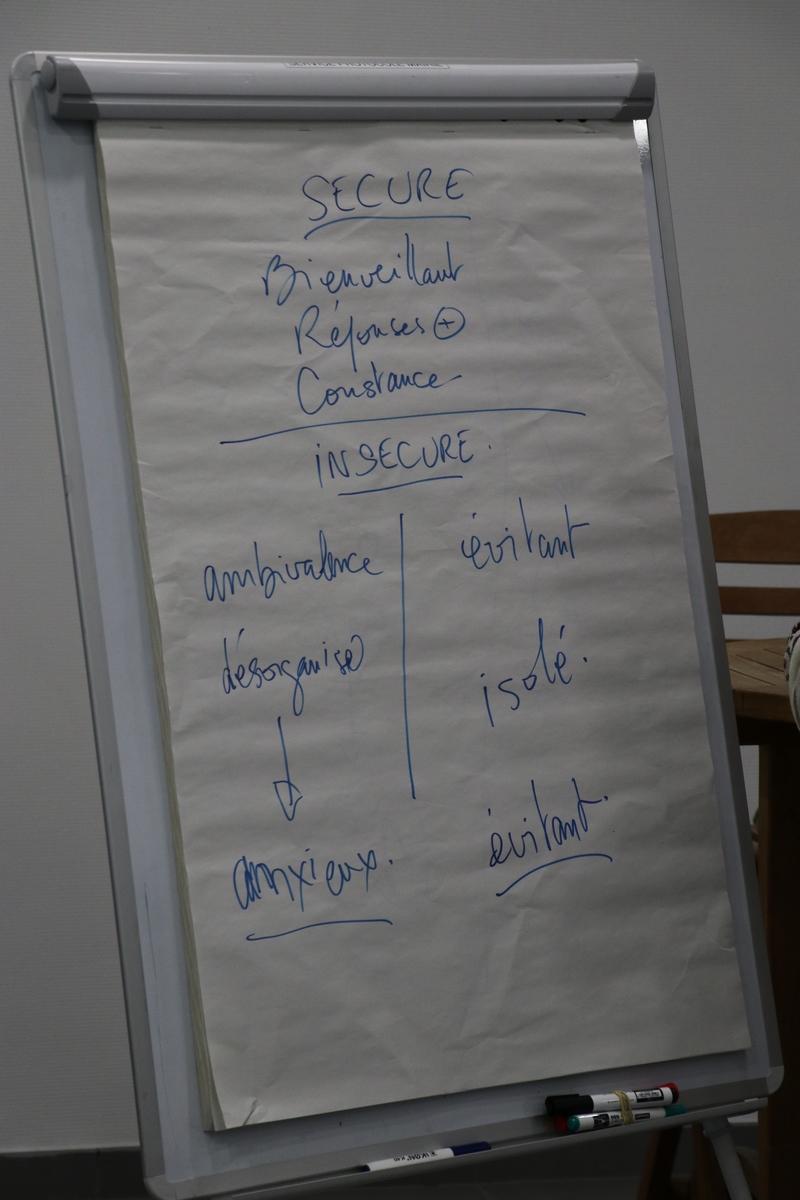 SERVICE PROTOCOLE MAIRIE
SECURE
Bienveillant
Réponses +
Constance
iNSECURE.
ambivalence
désorganisé
anxieux.
évitant
isolé.
évitant.